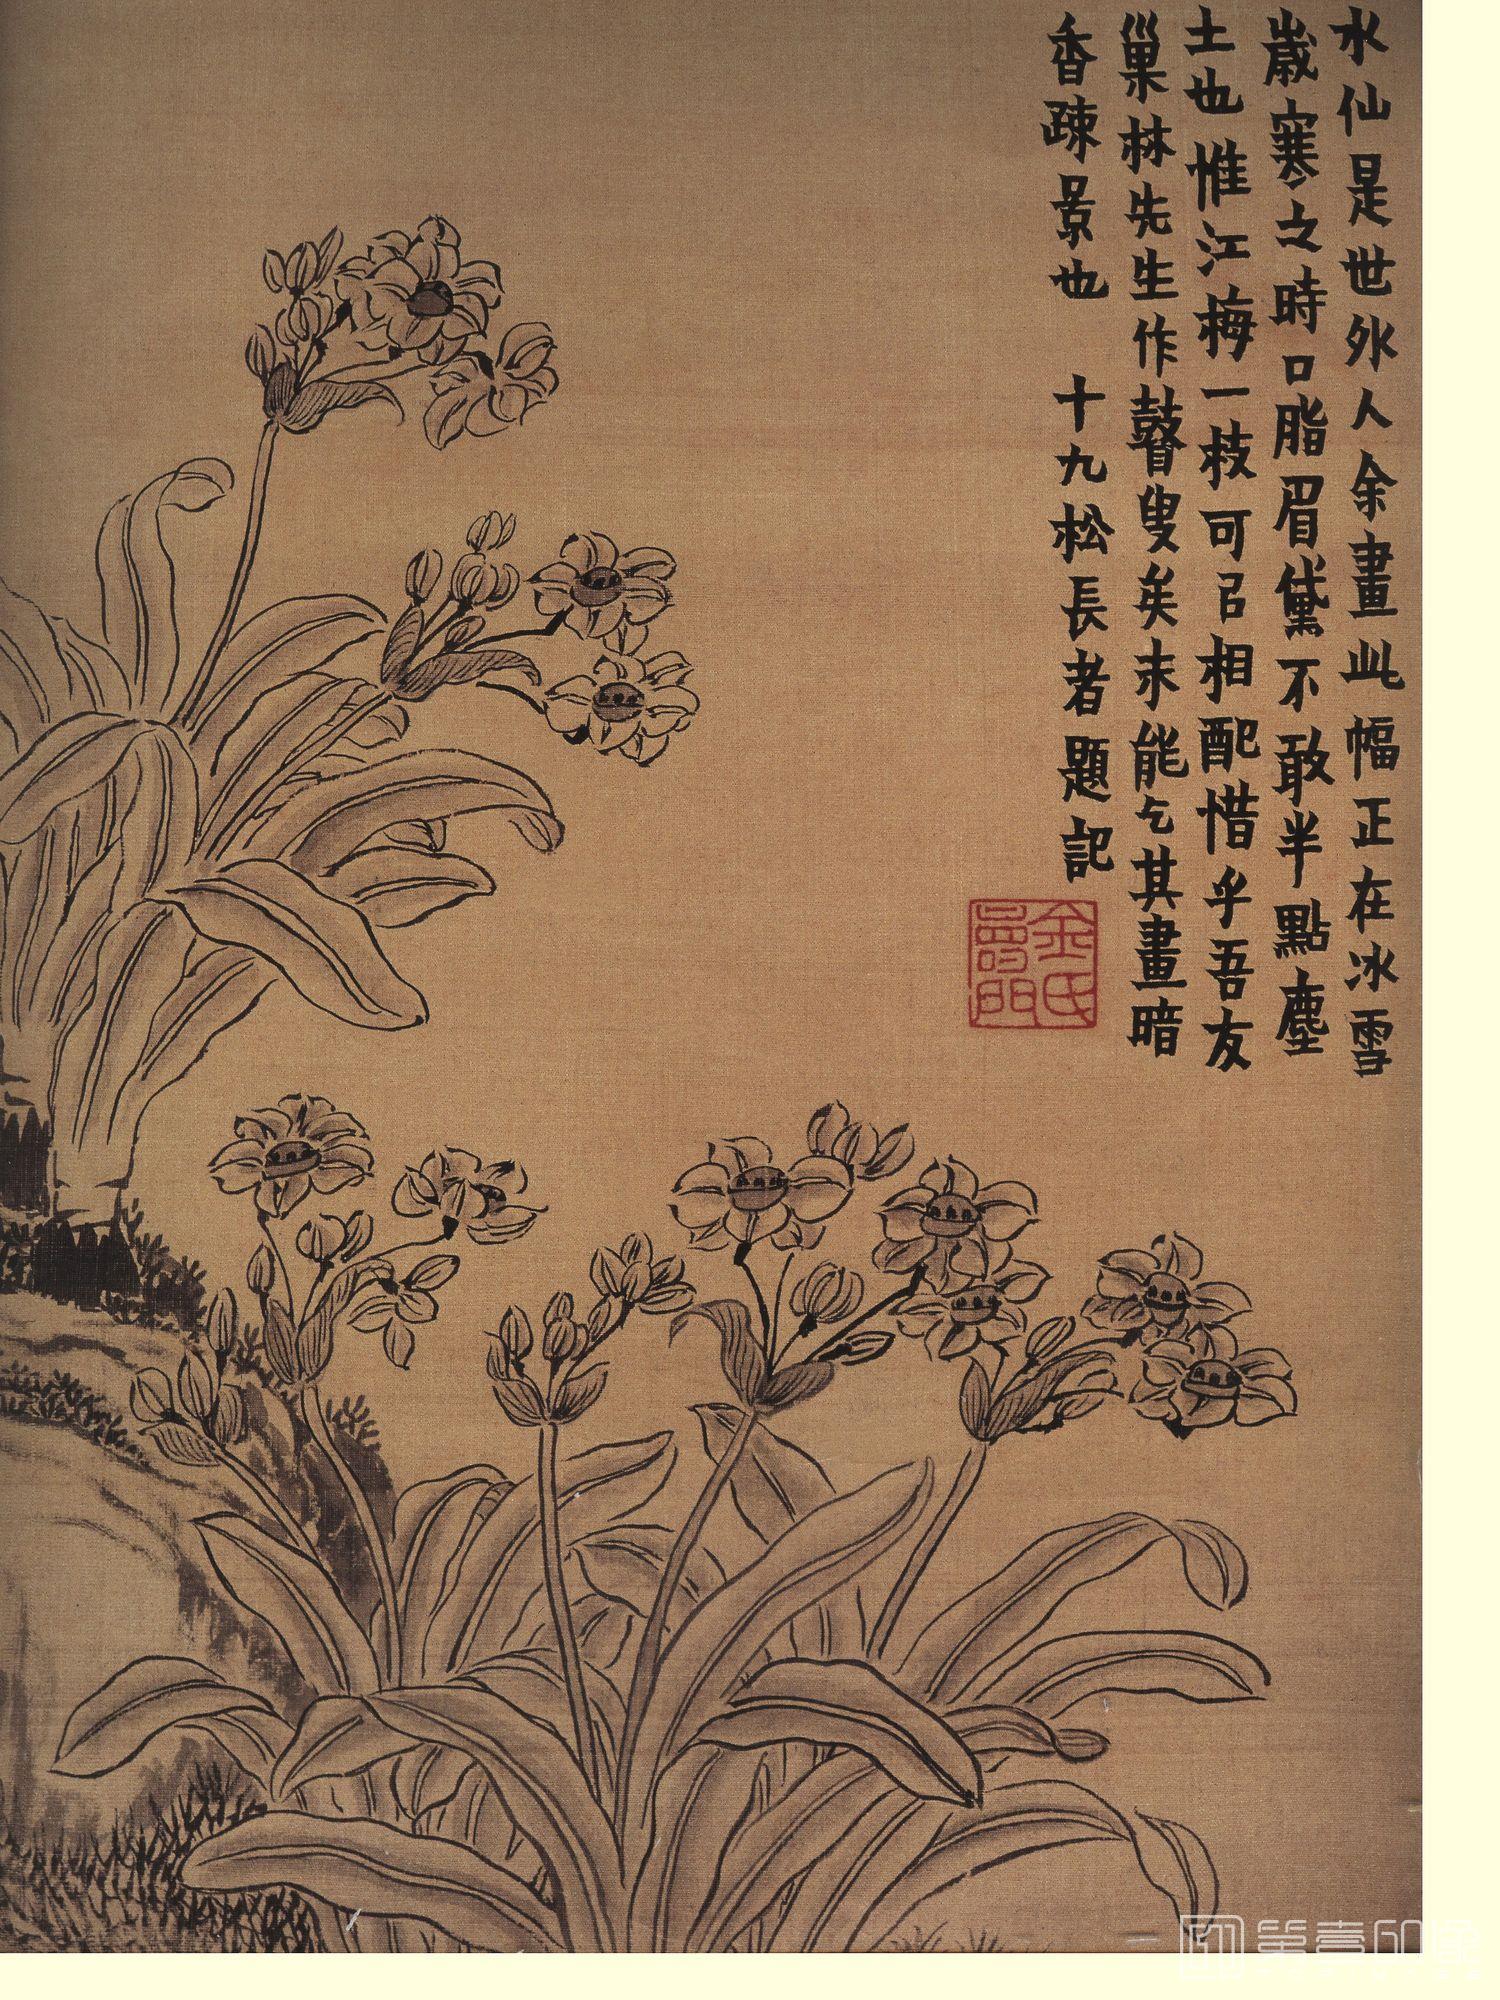 水仙是世外人余畫此幅正在冰雪
歲寒之時口脂眉黛不敢半點塵
土也惟江梅一枝可㠯相配惜乎吾友
巢林先生作瞽叟矣未能乞其畫暗
香疎景也 十九松長者題記
金氏
壽門